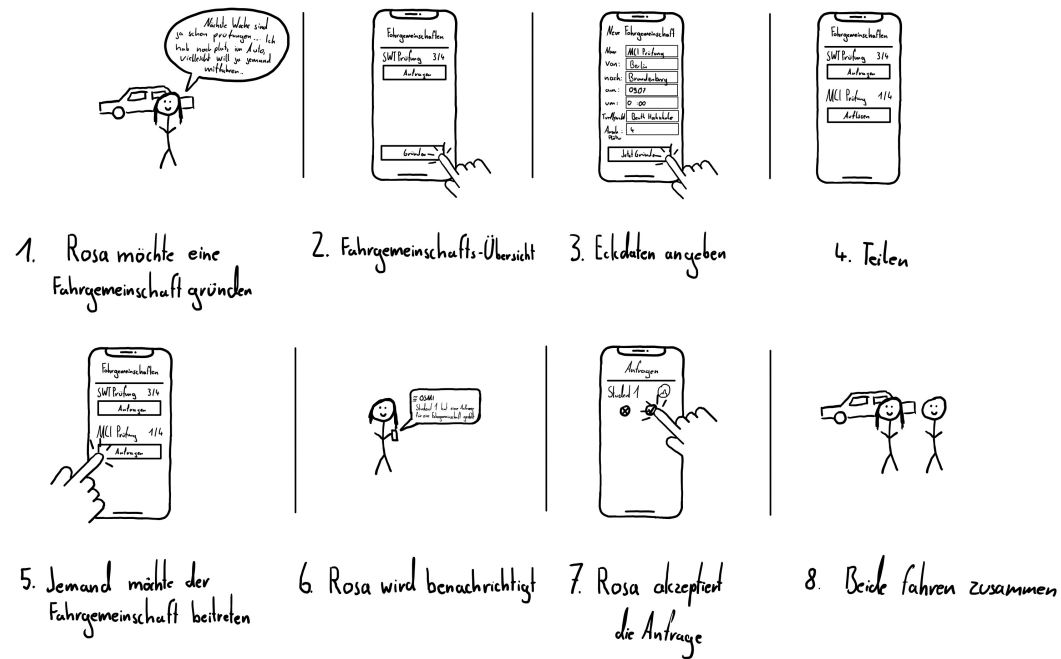 Nächste Woche sind
ja schon prüfungen... Ich
hab noch platz im Auto,
vielleicht will ja jemand
mitfahren..
1. Rosa möchte eine
Fahrgemeinschaft gründen
Fahrgemeinschaften
SWT Prüfung 3/4
Anfragen
Gründen
2. Fahrgemeinschafts-Übersicht
Neue Fahrgemeinschaft
MCI Prüfung
Von: Berlin
nach: Brandenburg
am: 09.07
um:
Treffpunkt Beuth Hochschule
4
Jetzt Gründen
3. Eckdaten angeben
Fahrgemeinschaften
SWT Prüfung 3/4
Anfragen
MCI Prüfung 1/4
Auflösen
4. Teilen
Fahrgemeinschaften
SWT Prüfung 3/4
Anfragen
MCI Prüfung 1/4
Anfragen
5. Jemand möchte der
Fahrgemeinschaft beitreten
Student 1 hat eine Anfrage
für eine Fahrgemeinschaft
6. Rosa wird benachrichtigt
Anfragen
Student 1
7. Rosa akzeptiert
die Anfrage
8. Beide fahren zusammen